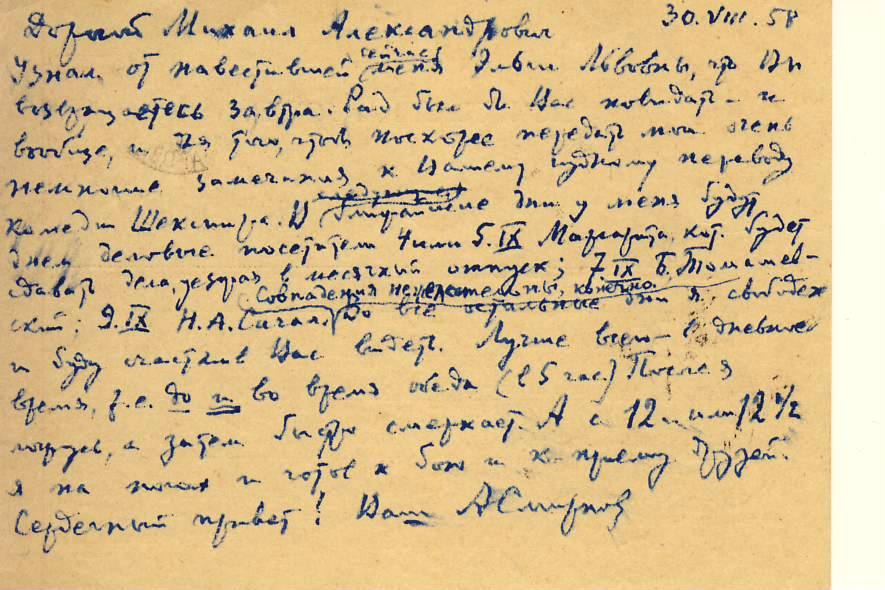 30.VIII.58
Дорогой Михаил Александрович
Узнал от навестившей сейчас меня Эльги Львовны, что Вы
возвращаетесь завтра. Рад был бы Вас повидать – и
вообще, и для того, чтобы поскорее передать мои очень
немногие замечания к Вашему чудному переводу
комедии Шекспира. В ближайшие дни у меня будут
днем деловые посетители 4 или 5.IX Маргарита, кот. будет
сдавать дела, уезжая в месячный отпуск; 7.IX Б. Томашев-
ский; 9.IX Н.А. Сигал. Во все остальные дни я свободен
(Совпадения нежелательны, конечно
и буду счастлив Вас видеть. Лучше всего – в дневное
время, т.е. до и во время обеда (в 5 час.) После я
, а затем быстро смеркает. А с 12 или 12 1/2
я на ногах и готов к бою и к приему друзей.
Сердечный привет! Ваш АСмирнов